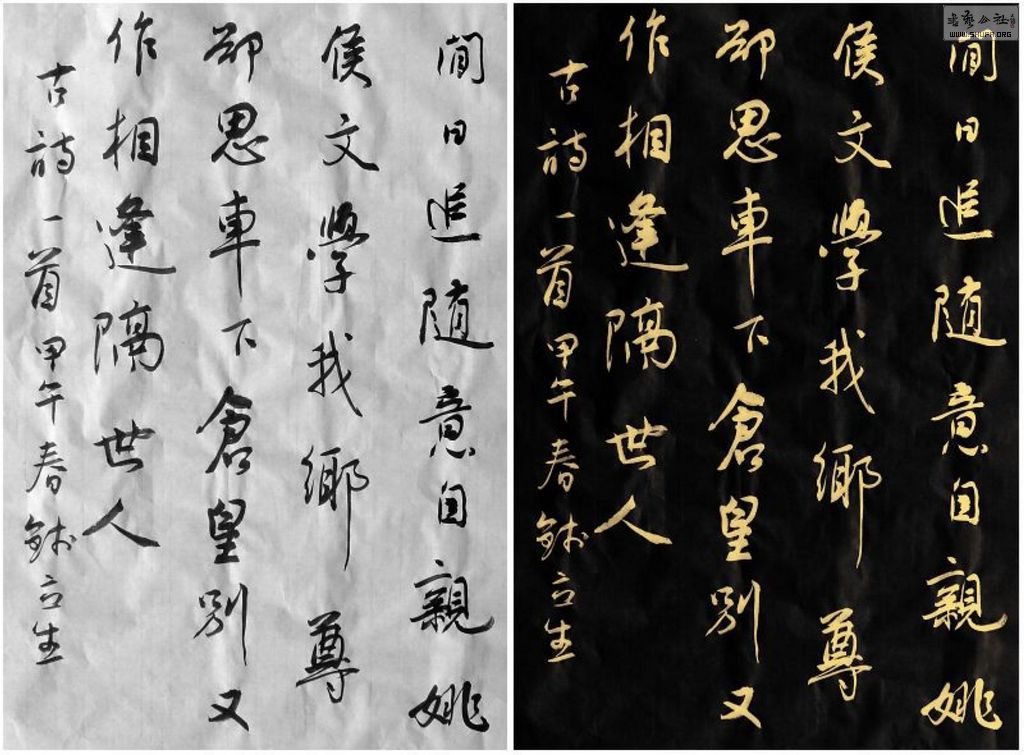 間日追随意自親姚
侯文學我鄉尊
卻思車下倉皇別又
作相逢隔世人
古詩一首甲午春
間日追随意自親姚
侯文學我鄉尊
卻思車下倉皇別又
作相逢隔世人
古詩一首甲午春
公社
WWW.SHUFA.ORG